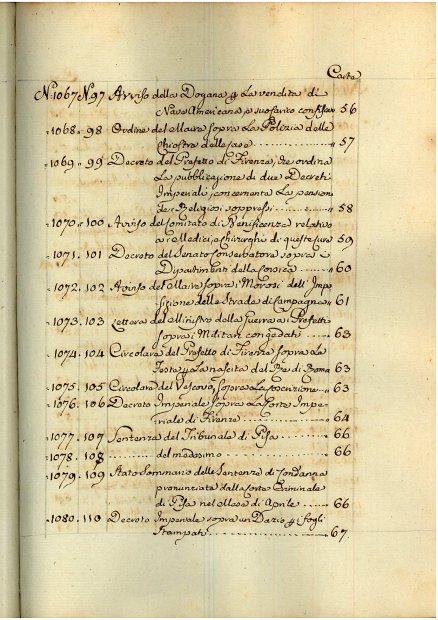 Carte
N. 1067 N. 97 Avviso della Dogana p. La vendita di
Nave Americana, e suo carico confisc. 56
1068. 98 Ordine del Maire sopra La Polizia delle
Chiostre delle case 57
1069. 99 Decreto del Prefetto di Firenze, che ordina
La pubblicazione di due Decreti
Imperiali, concernente La pensione
de Religiosi soppressi 58
1070. 100 Avviso del Comitato di Beneficenza relativo
a i Medici, e Chirurghi di queste cure 59
1071. 101 Decreto del Senato Conservatore sopra i
Dipartimenti della Corsica 60
1072. 102 Avviso del Maire sopra i Morosi dell' Impo-
sizione delle Strade di Campagna 61
1073. 103 Lettera del Ministro della Guerra a' Prefetti
sopra i Militari congedati 63
1074. 104 Circolare del Prefetto di Firenze sopra La
Festa p. La nascita del Re di Roma 63
1075. 105 Circolare del Vescovo, sopra La 63
1076. 106 Decreto Imperiale sopra La Corte Impe-
riale di Firenze 64
1077. 107 Sentenza del Tribunale di Pisa 66
1078. 108 del medesimo 66
1079. 109 Stato Sommario delle Sentenze di Condanna
pronunziate dalla Corte Criminale
di Pisa nel Mese di Aprile 66
1080. 110 Decreto Imperiale sopra un Dazio p. i fogli
Stampati 67.